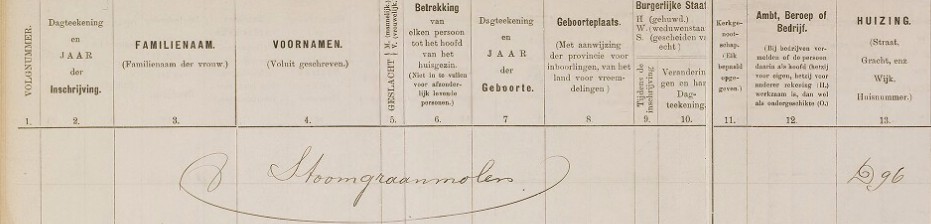 VOLGNUMMER.
Dagteekening
en
JAAR
der
Inschrijving.
FAMILIENAAM.
(Familienaam der vrouw.)
VOORNAMEN.
(Voluit geschreven.)
GESLACHT M. (mannelijk.) V. (vrouwelijk.)
Betrekking
van
elken persoon
tot het hoofd
van het
huisgezin.
(Niet in te vullen
voor afzonder-
lijk levende
personen.)
Dagteekening
en
JAAR
der
Geboorte.
Geboorteplaats.
(Met aanwijzing
der provincie voor
inboorlingen, van het
land voor vreem-
delingen.)
Burgerlijke Staat
H (gehuwd.)
W. (weduwenstaat
S. (gescheiden v.
echt)
Tijdens de
inschrijving
Veranderin
gen en har
Dag-
teekening.
Kerkge-
noot-
schap.
(Elk
bepaald
opge-
geven.)
Ambt, Beroep of
Bedrijf.
(Bij bedrijven ver-
melden of de persoon
daarin als hoofd (hetzij
voor eigen, hetzij voor
anderer rekening (H.)
werkzaam is, dan wel
als ondergeschikte (O.)
HUIZING.
(Straat,
Gracht, enz
Wijk.
Huisnummer.)
1. 2. 3. 4. 5. 6. 7 8 9. 10. 11. 12. 13.
Stoomgraanmolen D 96